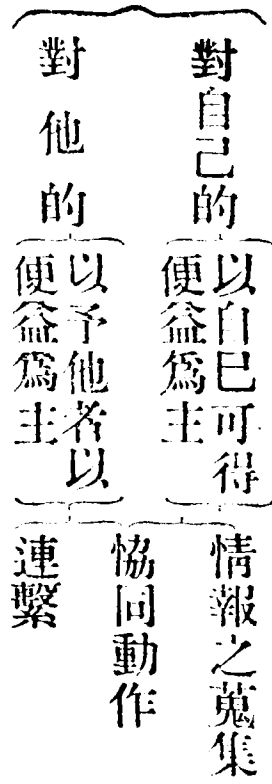 對自己的
以自己可得
便益爲主
對他的
以予他者以
便益爲主
情報之蒐集
恊同動作
連繫